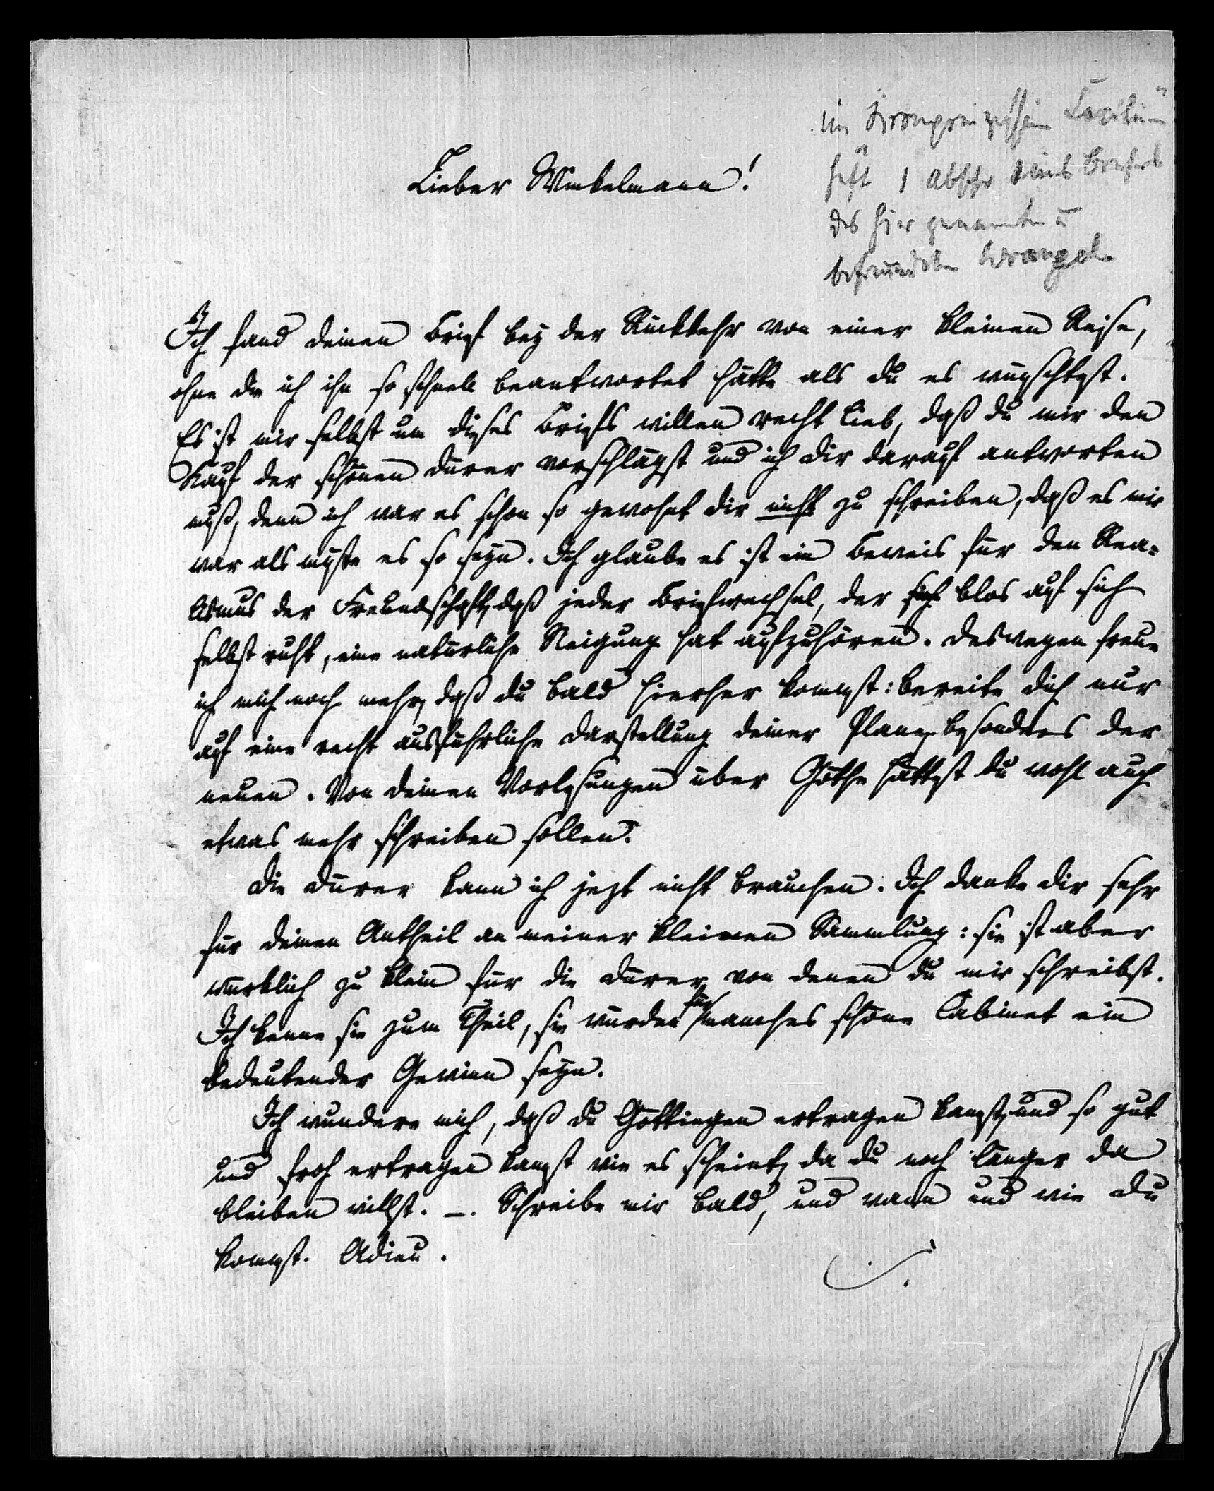 Lieber Winkelmann!
im
heft 1 Abschr eines Briefes
des hier genannten u
befreundeten Wrangel.
Ich fand deinen Brief bey der Rückkehr von einer kleinen Reise,
ohne die ich ihn so schnell beantwortet hätte als du es wünschtest.
Es ist mir selbst um dieses Briefs willen recht lieb, daß du mir den
Kauf der schönen Dürer vorschlägst und ich dir darauf antworten
muß, denn ich war es schon so gewohnt dir nicht zu schreiben, daß es mir
war als müste es so seyn. Ich glaube es ist ein Beweis für den Rea-
lismus der Freundschaft, daß jeder Briefwechsel, der sich blos auf sich
selbst ruht, eine natürliche Neigung hat aufzuhören. Deswegen freue
ich mich noch mehr, daß du bald hierher kommst: bereite dich nur
auf eine recht ausführliche Darstellung deiner Plane, besonders der
neuen. Von deinen Vorlesungen über Göthe hättest du wohl auch
etwas mehr schreiben sollen.
Die Dürer kann ich jezt nicht brauchen. Ich danke dir sehr
für deinen Antheil an meiner kleinen Sammlung: sie ist aber
würklich zu klein für die Dürer, von denen du mir schreibst.
Ich kenne sie zum Theil, sie würden für manches schöne Cabinet ein
bedeutender Gewinn seyn.
Ich wundere mich, daß du Göttingen ertragen kannst, und so gut
und froh ertragen kannst wie es scheint, da du noch länger da
bleiben willst. –. Schreibe mir bald, und wann und wie du
kommst. Adieu.